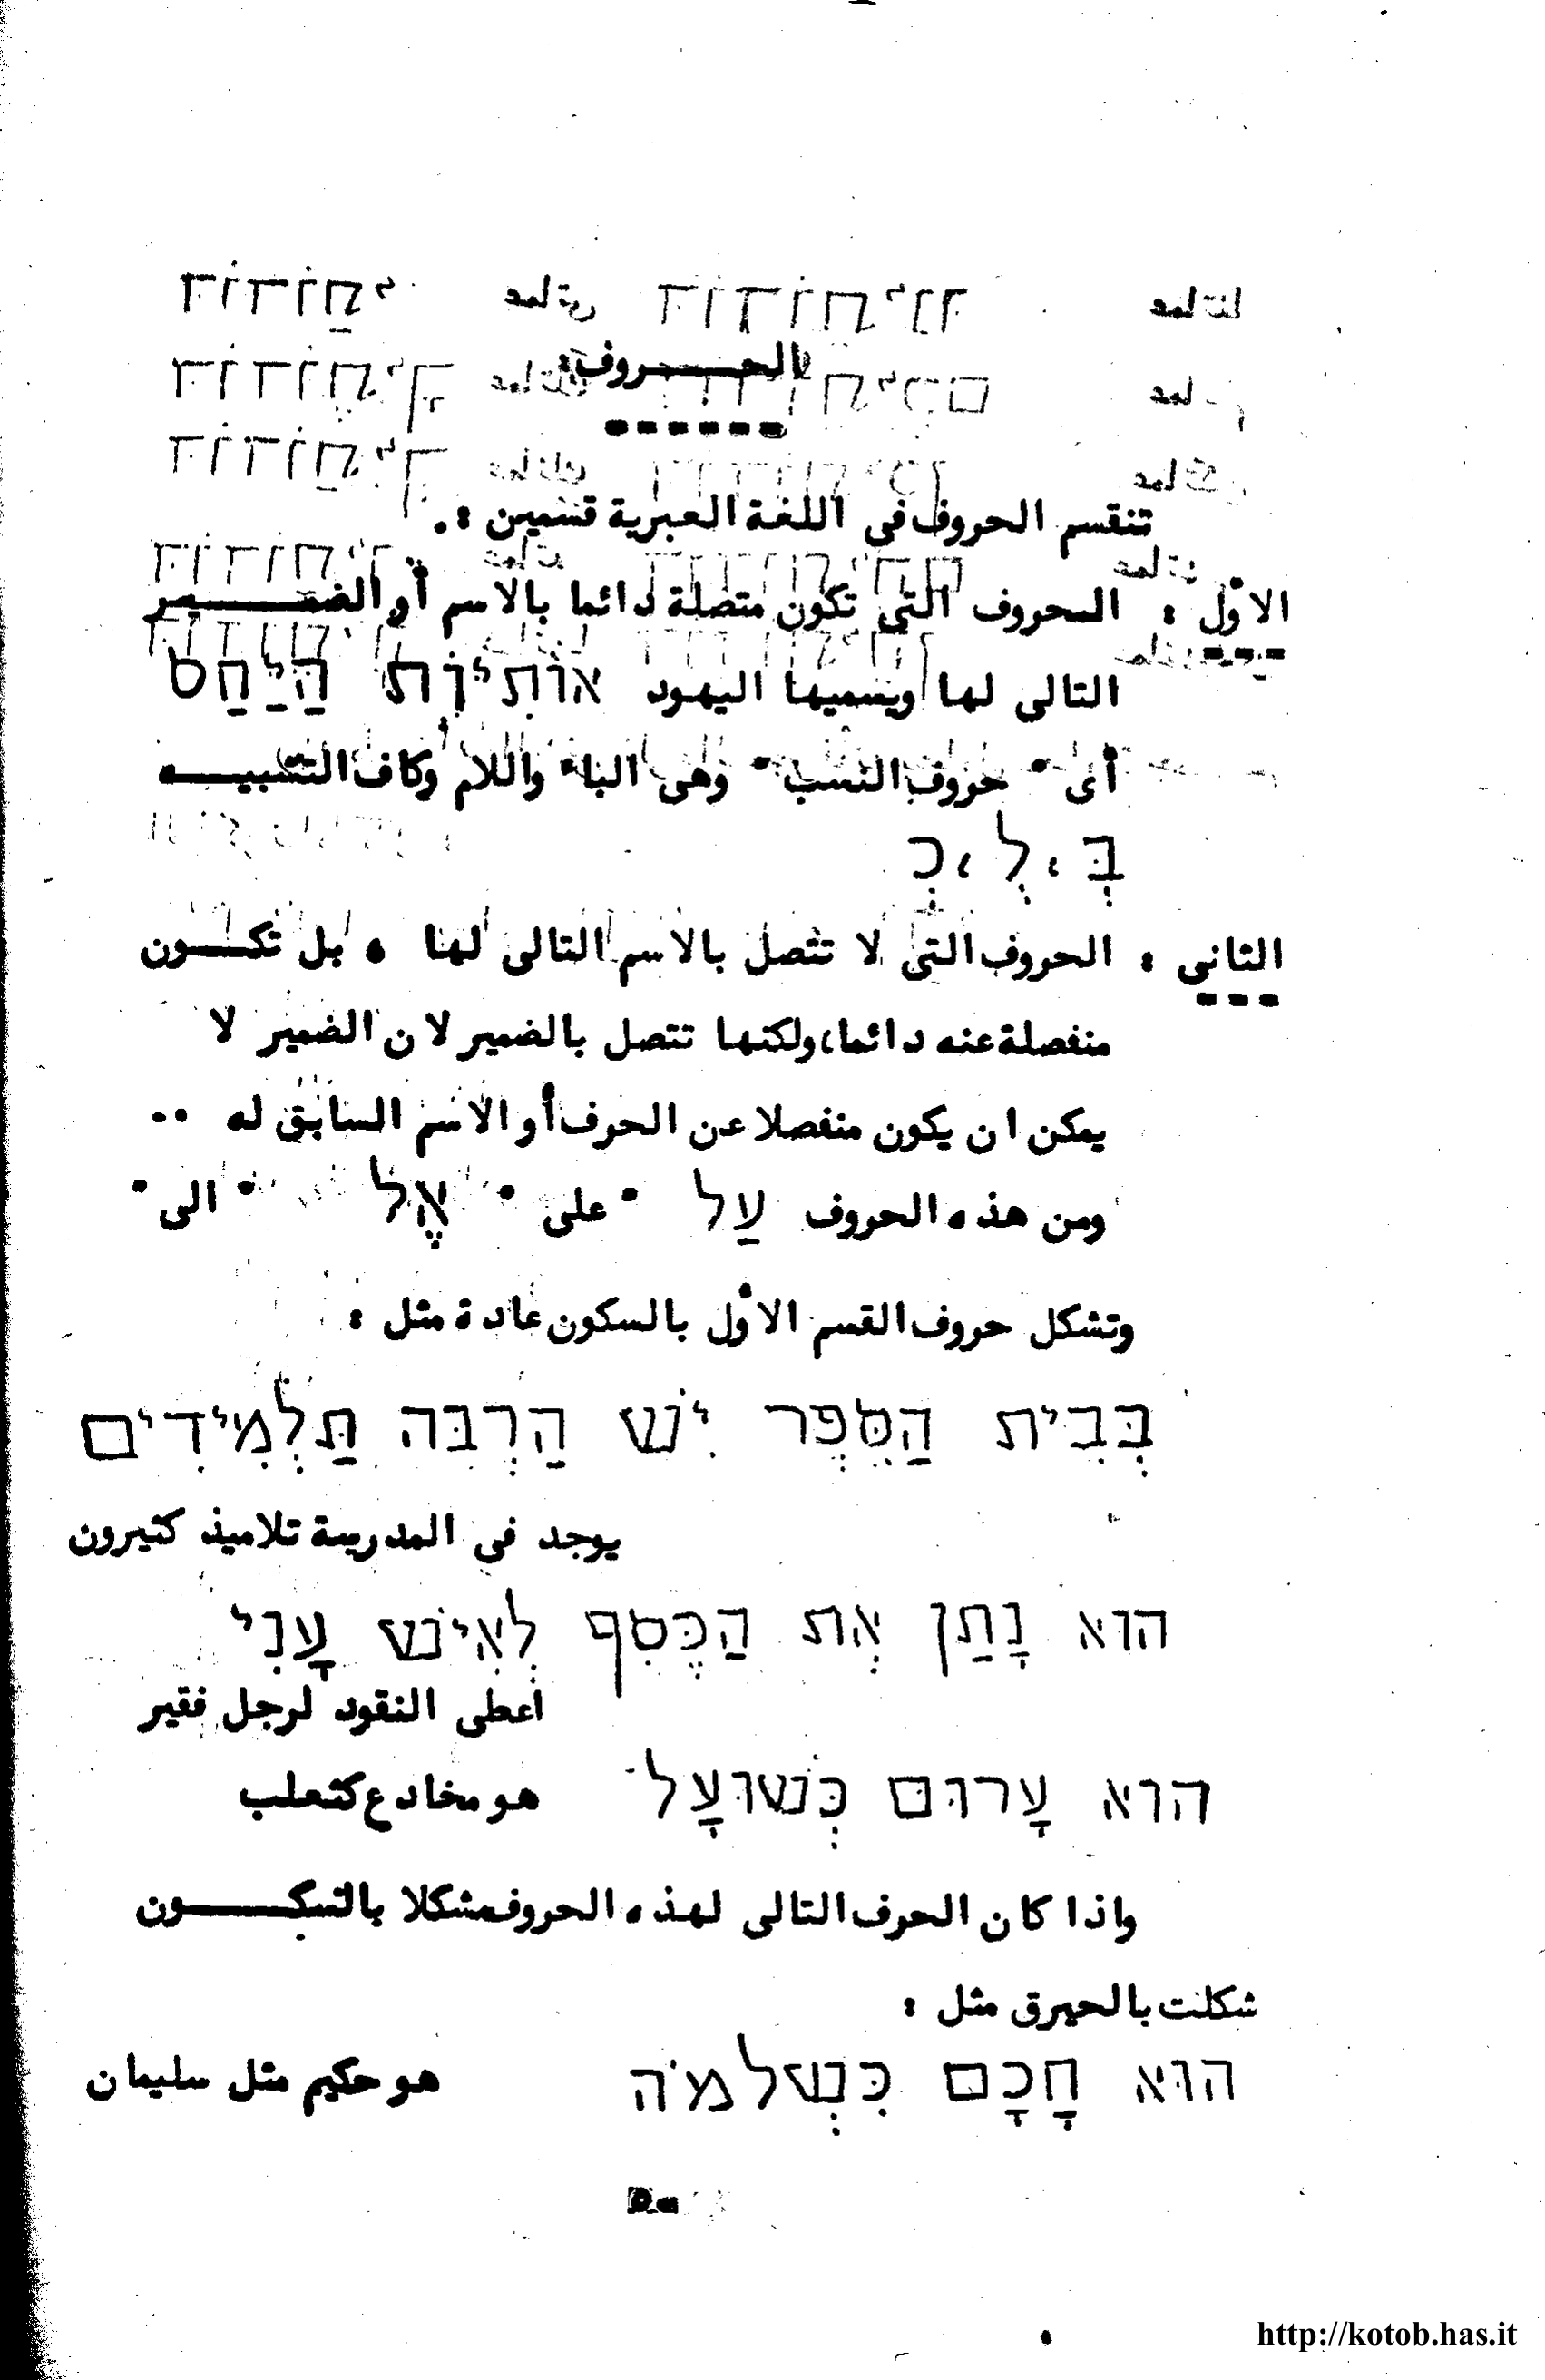 الحــــروف
تنقسم الحروف في اللغة العبرية قسمين :.
الأول : الحروف التي تكون متصلة دائما بالاسم أو الضمــــير
التالي لها ويسميها اليهود אוֹתִיוֹת הַיַּחַס
أى " حروف النسب " وهى الباء واللام وكاف التشبيـــه
בְּ ، לְ ، כְ
الثاني : الحروف التي لا تتصل بالاسم التالي لها ، بل تكــون
منفصلة عنه دائما، ولكنها تتصل بالضمير لان الضمير لا
يمكن ان يكون منفصلا عن الحرف أو الاسم السابق له ..
ومن هذه الحروف עַל " على " אֶל " الى "
وتشكل حروف القسم الأول بالسكون عادة مثل :
בְּבִית הַסִּפְר יִשׁ הַרְבּה תַּלְמִידִים
يوجد في المدرسة تلاميذ كثيرون
הוּא נָתַן אְת הַכֶּסִף לְאִישׁ עָנִי
أعطى النقود لرجل فقير
הוּא עָרוּם כְּשׁוּעָל هو مخادع كثعلب
واذا كان الحرف التالي لهذه الحروف مشكلا بالسكــــون
شكلت بالحيرق مثل :
הוּא חָכָם כִּשְׁלמֹה هو حكيم مثل سليمان
http://kotob.has.it